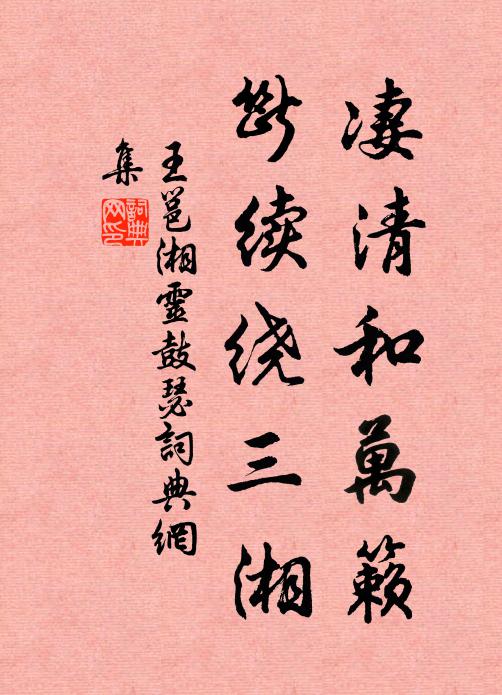 凄清和萬籟
斷续绕三湘
王邕湘靈鼓瑟詞典網
集
詞典
网印